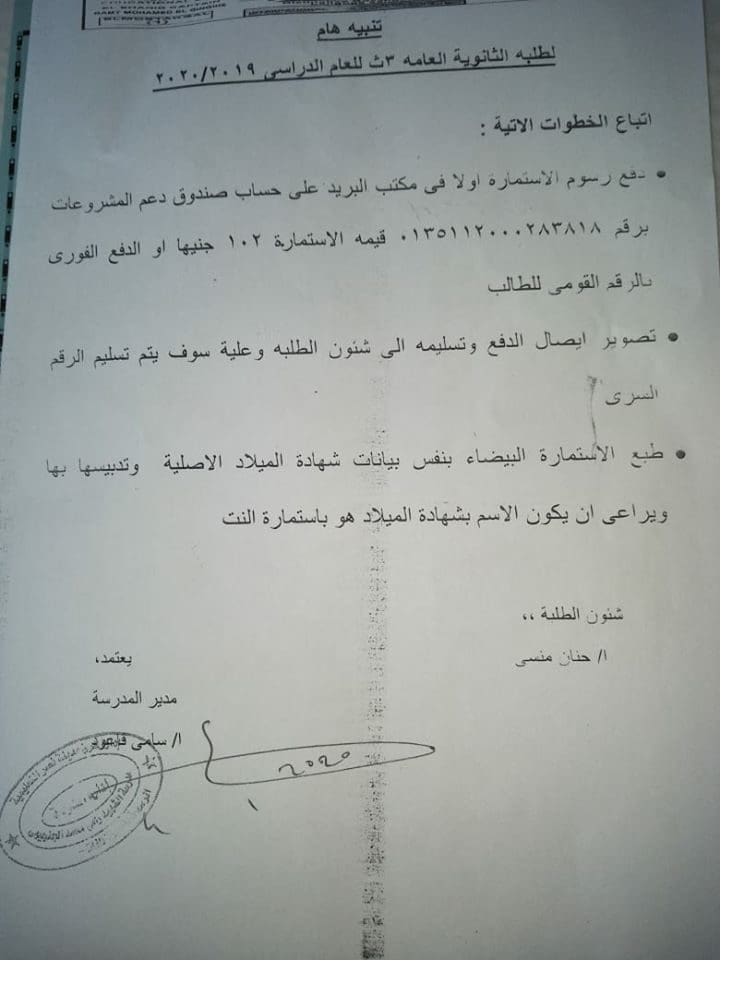 EL SHAHID CAPTAIN
RAMY MOHAMED EL GINGIHE
تنبيه هام
لطلبه الثانوية العامه ٣ث للعام الدراسى ٢٠٢٠/٢٠١٩
اتباع الخطوات الاتية :
• دفع رسوم الاستمارة اولا فى مكتب البريد على حساب صندوق دعم المشروعات
برقم ٠١٣٥١١٢٠٠٠٢٨٣٨١٨ قيمه الاستمارة ١٠٢ جنيها او الدفع الفورى
بالرقم القومى للطالب
• تصوير ايصال الدفع وتسليمه الى شئون الطلبه وعلية سوف يتم تسليم الرقم
السرى
• طبع الاستمارة البيضاء بنفس بيانات شهادة الميلاد الاصلية وتدبيسها بها
ويراعى ان يكون الاسم بشهادة الميلاد هو باستمارة النت
شئون الطلبة ،،
ا/ حنان منسى
يعتمد،
مدير المدرسة
ا/ سامى
٢٠٢٠